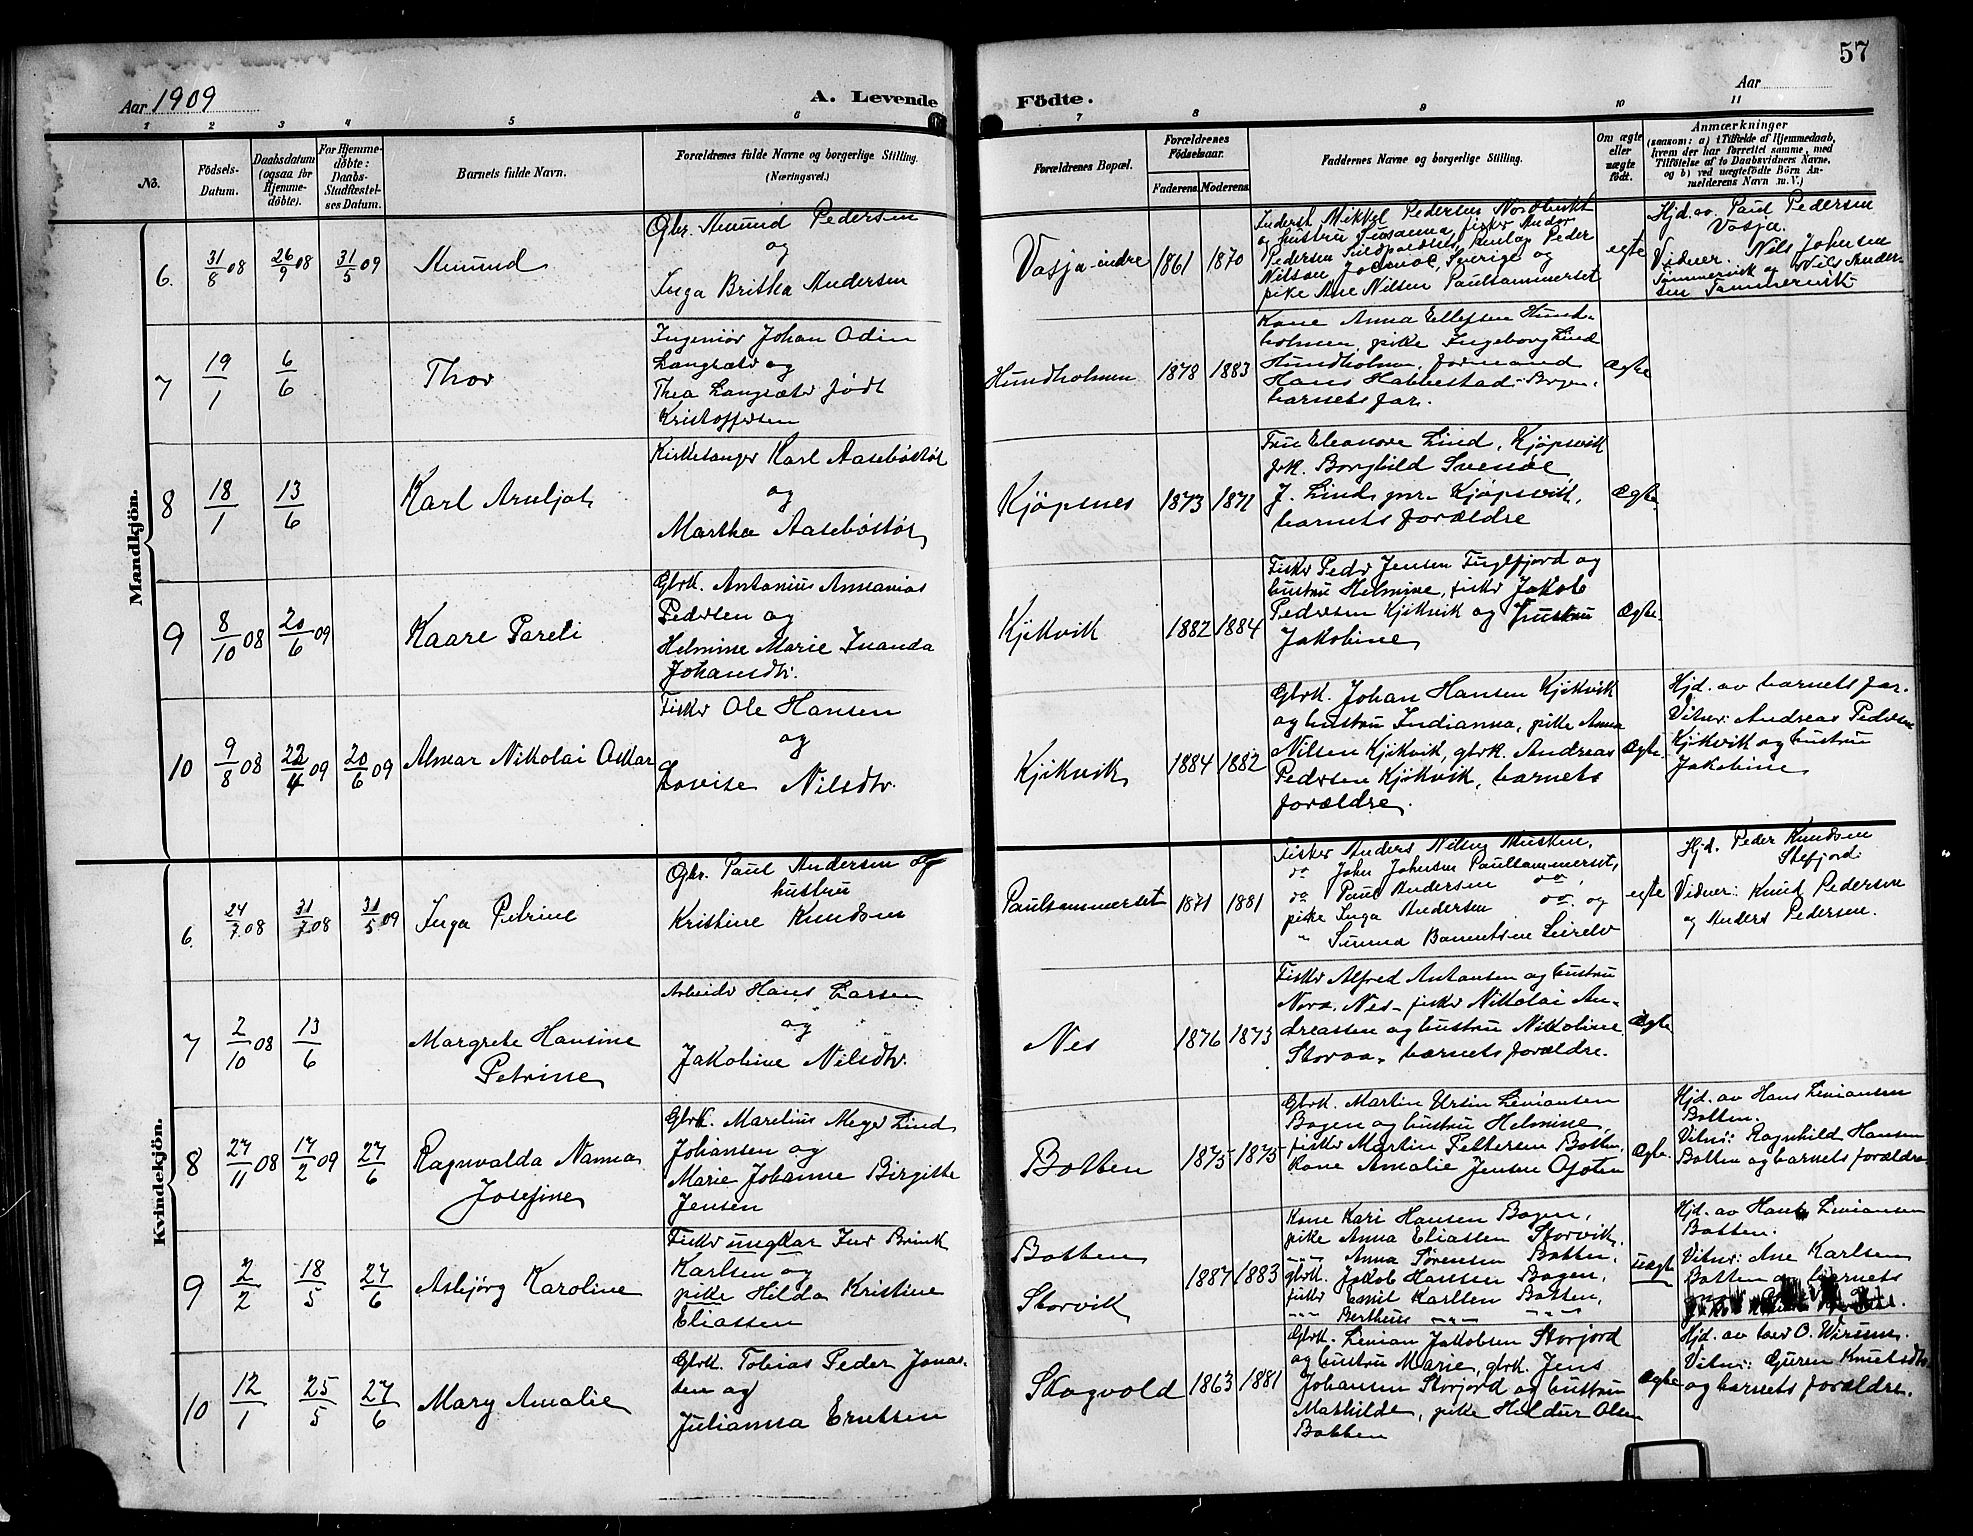 57
Aar 1909
A. Levende
Födte.
Aar
1 2 3 4 5 6 7 8 9 10 11
No.
Födsels-
Datum.
Daabsdatum
(ogsaa for
Hjemme-
döbte).
For Hjemme-
döbte:
Daabs-
Stadfæstel-
ses Datum.
Barnets fulde Navn.
Forældrenes fulde Navne og borgerlige Stilling.
(Næringsvei.)
Forældrenes Bopæl.
Forældrenes
Födselsaar.
Faderens. Moderens.
Faddernes Navne og borgerlig Stilling.
Om ægte
eller
uægte
födt.
Anmærkninger
(saasom: a) i Tilfælde af Hjemmedaab,
hvem der har forrettet samme, med
Tilföielse af to Daabsvidners Navne,
og b) ved uægtefödte Börn An-
melderens Navn m. V.)
Mandkjön.
6.
31/8 08
26/9 08
31/5 09
Amund
Gbr. Amund Pedersen
og
Inga Britha Andersen
Vasja-indre
1861
1870
Inderst Mikkel Pedersen Nordbukt
og hustru Susanna, fisker Andor
Pedersen, Peder
Nilsen, Sverige og
pike Ane Nilsen Paulsammerset
egte
Hjd. av Paul Pedersen
Vasja.
Vidner. Nils Johnsen
Tømmervik og Nils Ander-
sen Tømmervik
7
19/1
6/6
Thor
Ingeniør Johan Odin
Langsæter og
Thea Langsæter født
Kristoffersen
Hundholmen
1878
1883
Kone Anna Ellefsen Hund-
holmen, pike Ingeborg Lind
Hundholmen, formand
Hans Habbestad - Bogen,
barnets far.
Ægte
8
18/1
13/6
Karl Arnljot
Kirkesanger Karl Aasebøstøl
og
Martha Aasebøstøl
Kjöpsnes
1873
1871
Fru Eleonore Lind, Kjøpsvik
frk. Borghild Svensøe
J. Lind jnr. Kjøpsvik,
barnets forældre
Ægte
9
8/10 08
20/6 09
Kaare Pareli
Gbrk. Antonius Annanias
Pedersen og
Helmine Marie Inanda
Johansdtr.
Kjikvik
1882
1884
Fisker Peder Jensen Fuglfjord og
hustru Helmine, fisker Jakob
Pedersen Kjikvik og hustru
Jakobine
Ægte
10
9/8 08
22/4 09
20/6 09
Almar Nikolai Oskar
Fisker Ole Hansen
og
Lovise Nilsdtr.
Kjikvik
1884
1882
Gbrk. Johan Hansen Kjikvik
og hustru Indianna, pike Anna
Nilsen Kjikvik, gbrk. Andreas
Pedersen Kjikvik, barnets
forældre.
Ægte
Hjd. av barnets far.
Vitner: Andreas Pedersen
Kjikvik og hustru
Jakobine
Kvindekjön.
6.
24/7 08
31/7 08
31/5 09
Inga Petrine
Gbr. Paul Andersen og
hustru
Kristine Knudsen
Paulsammerset
1871
1881
Fisker Anders Nilsen Musken,
do John Johnsen Paulsammerset,
do Paul Andersen do.,
pike Inga Andersen do. og
" Sunna Leirelv
egte
Hjd. Peder Knudsen
Stefjord.
Vidner: Knut Pedersen
og Anders Pedersen.
7
2/10 08
13/6
Margrete Hansine
Petrine
Arbeider Hans Larsen
og
Jakobine Nilsdtr.
Nes
1876
1873
Fisker Alfred Antonsen og hustru
Nora, Nes - fisker Nikolai An-
dreassen og hustru Nikoline
Storaa - barnets forældre.
Ægte
8
27/11 08
17/2 09
27/6
Ragnvalda Nanna
Josefine
Gbrk. Marelius Meyer Lind
Johansen og
Marie Johanne Birgitte
Jensen
Botten
1875
1875
Gbrk. Martin Ursin Leviansen
Bogen og hustru Helmine,
fisker Martin Pettersen Botten
Kone Amalie Jensen
Ægte
Hjd. av Hans Leviansen
Botten.
Vitner: Ragnhild Hansen
Botten og barnets forældre
9
2/2
18/5
27/6
Asbjörg Karoline
Fisker ungkar Iver Brink
Karlsen og
pike Hilda Kristine
Eliassen
Botten
Storvik
1887
1883
Kone Kari Hansen Bogen,
pike Anna Eliassen Storvik
-"- Anna Sørensen Botten,
gbrk. Jakob Hansen Bogen,
fisker Emil Karlsen Botten,
-"- Bertheus -"-
uægte
Hjd. av Hans Leviansen
Botten.
Vitner: Ane Karlsen
Botten og barnets
10
12/1
25/5
27/6
Mary Amalie
Gbrk. Tobias Peder Jonas-
sen og
Julianna Erntsen
Skogvold
1863
1881
Gbrk. Levian Jakobsen Storjord
og hustru Marie, gbrk. Jens
Johansen Storjord og hustru
Mathilde, pike Hildur Olsen
Botten
Ægte
Hjd. av lærer O. Wirum.
Vitner: Guren Knutsdtr.
og barnets forældre.